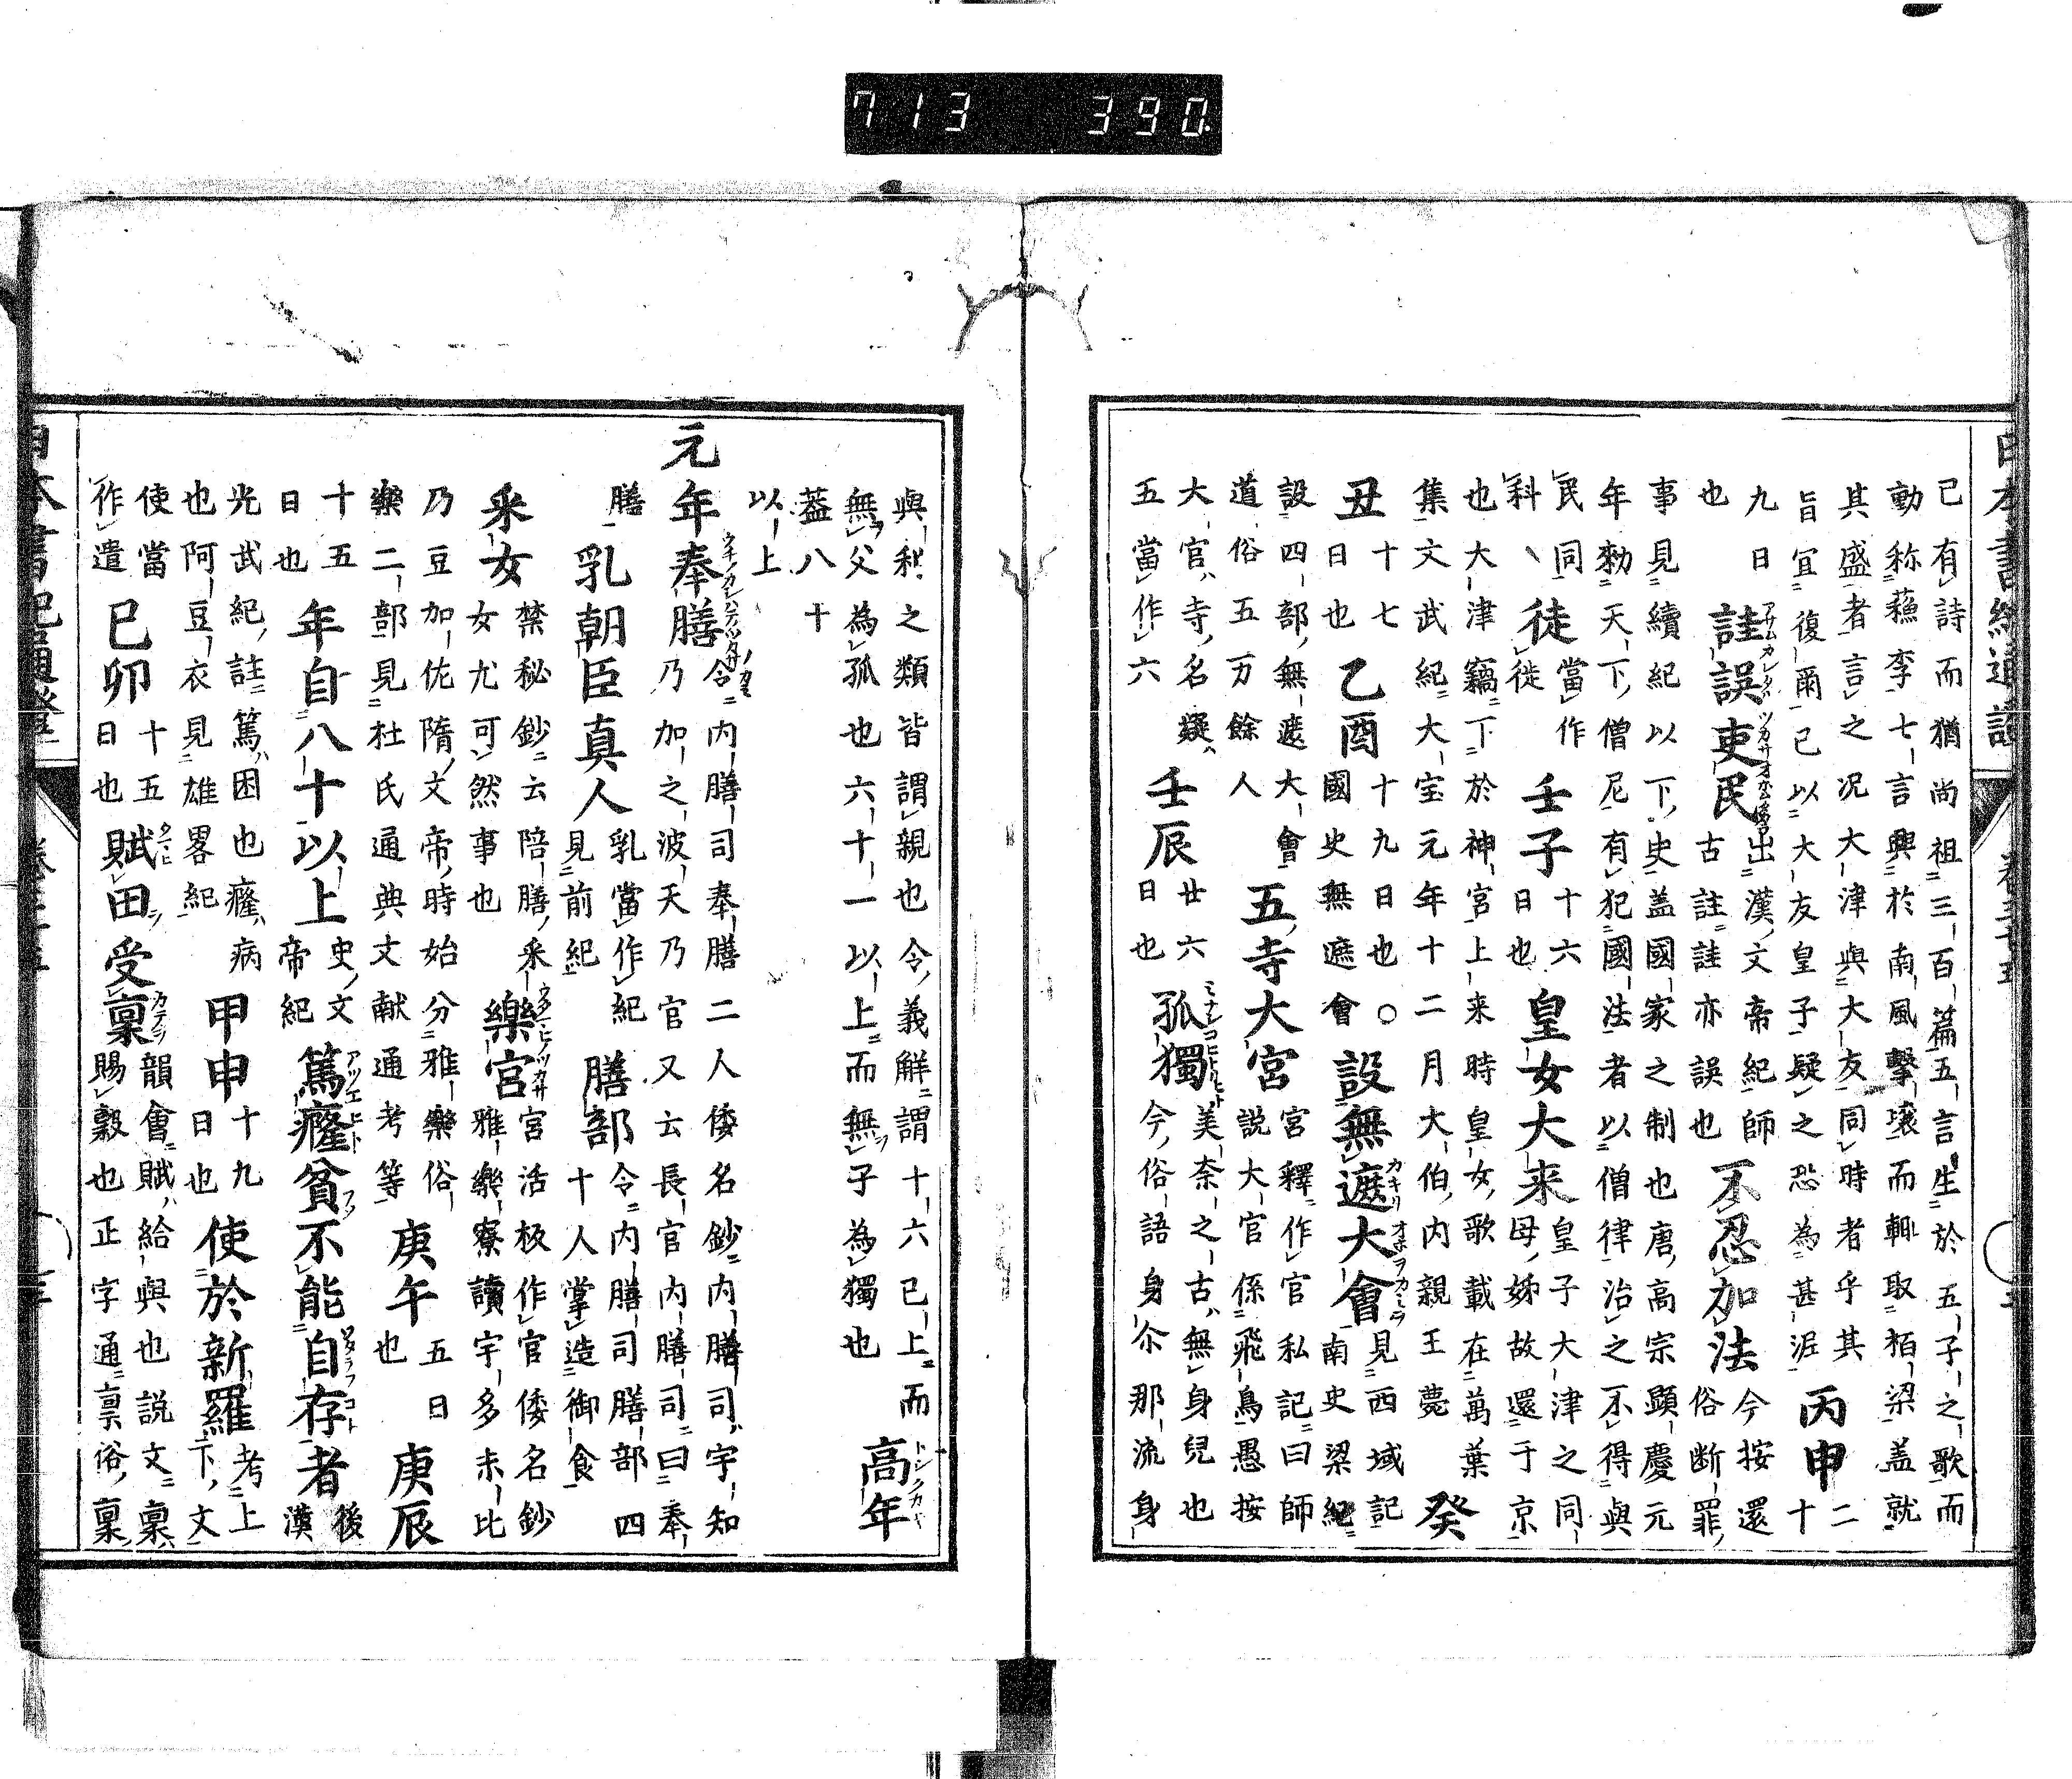 713 390
日本書紀通證 卷三十五
已有詩而猶尚祖三百篇五言生於五子之歌而
動称蘓李七言興於南風擊壌而輙取栢梁盖就
其盛者言之况大津與大友同時者乎其
旨冝復爾已以大友皇子疑之恐為甚泥 丙申 二十
九日 詿誤吏民 出漢文帝紀師古註詿亦誤也 不忍加法 今按還俗断罪
也
事見續紀以下史盖國家之制也唐高宗顯慶元
年勑天下僧尼有犯國法者以僧律治之不得與
民同 徒 當作
科 徙 壬子 十六日也 皇女大来 皇子大津之同母姊故還于京
也大津竊下於神宮上来時皇女歌載在萬葉
集文武紀大宝元年十二月大伯内親王薨 癸
丑 十七日也 乙酉 十九日也○國史無遮會 設無遮大會 見西域記南史梁紀
設四部無遮大會 五寺大宮 宮釋作官私記曰師說大官係飛鳥愚按
道俗五万餘人
大官寺名疑 壬辰 廿六日也 孤獨 美奈之古無身兒也今俗語身尒那流身
五當作六
與利之類皆謂親也令義解謂十六已上而
無父為孤也六十一以上而無子為獨也 高年
葢八十
以上
元年奉膳 令内膳司奉膳二人倭名鈔内膳司字知乃加之波天乃官又云長官内膳司曰奉
膳 乳朝臣真人 乳當作紀見前紀 膳部 令内膳司膳部四十人掌造御食
釆女 禁秘鈔云陪膳釆女尤可然事也 樂官 官活板作官倭名鈔雅樂寮讀宇多末比
乃豆加佐隋文帝時始分雅樂俗
樂二部見杜氏通典文献通考等 庚午 五日也 庚辰
十五日也 年自八十以上 史文帝紀 篤癃貧不能自存者 後漢
光武紀註篤困也癃病
也阿豆衣見雄畧紀 甲申 十九日也 使於新羅 考上下文
使當作遣 已卯 十五日也 賦田受稟 韻會賦給與也説文稟賜穀也正字通稟俗稟
日本書紀通證